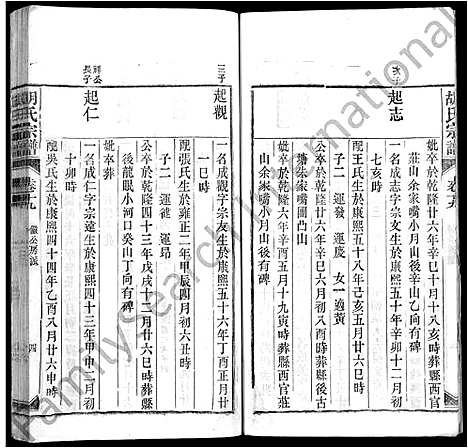 胡氏宗譜
卷十九
妣卒於乾隆四十年十月十八亥時葬縣西官
莊山余家嘴小月山後辛山乙向有碑
次子
起志
一名成志字宗文生於康熙五十年辛卯十二月
七亥時
配王氏生於康熙五十八年己亥六月初七寅時
子二 運發 運慶 女一適黃
公卒於乾隆廿六年辛巳六月初八巳時葬縣後古
塘朱家嘴圍凸山
妣卒於乾隆廿六年辛酉五月十九寅時葬縣西官莊
山余家嘴小月山後有碑
三子
起觀
一名成觀字宗友生於康熙五十六年丁酉正月廿
一巳時
配張氏生於雍正二年甲辰四月初六丑時
子二 運健 運昂
公卒於乾隆四十三年戊戌十二月廿六巳時葬縣
後龍眼小河口癸山丁向有碑
妣卒葬
祥公
長子
起仁
一名成仁字宗遠生於康熙四十三年甲申二月初
十卯時
配吳氏生於康熙四十四年乙酉八月廿六申時
胡氏宗譜
卷十九
公房派
四
FamilySearch International